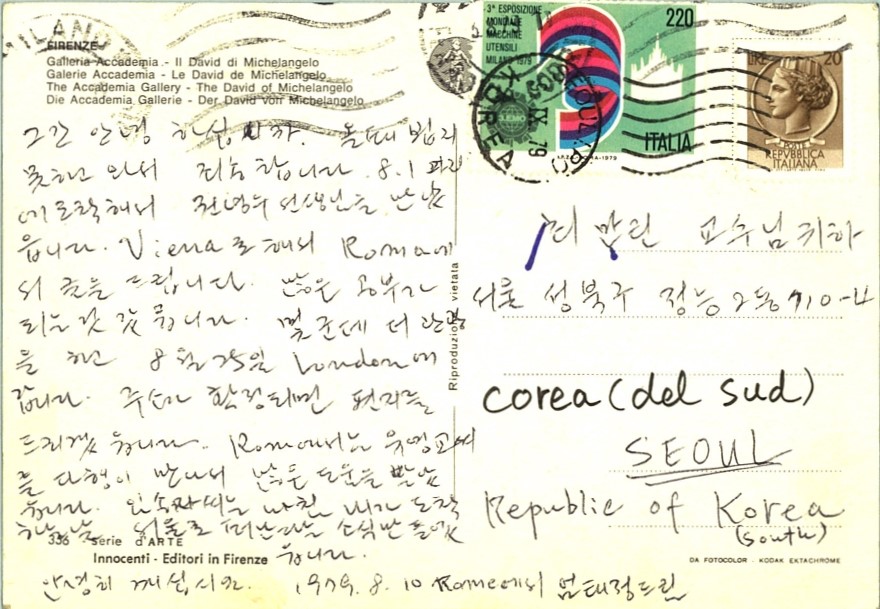 MILANO
FIRENZE
Galleria Accademia - Il David di Michelangelo
Galerie Accademia - Le David de Michelangelo
The Accademia Gallery - The David of Michelangelo
Die Accademia Gallerie - Der David von Michelangelo
3ª ESPOSIZIONE
MONDIALE
MACCHINE
UTENSILI
MILANO 1979
220
ITALIA
LIRE 20
POSTE
REPVBBLICA
ITALIANA
SEOUL
KOREA
그간 안녕 하십니까. 뵙지
못하고 와서 죄송합니다. 8.1 파리
에 도착해서 선생님을 만났
읍니다. Vienna로 해서 Roma에
서 글을 드립니다. 많은 공부가
되는것 같읍니다. 몇 군데 더 관광
을 하고 8월 25일 London에
갑니다. 주소가 확정되면 편지를
드리겠읍니다. Roma에서는 유영교씨
를 다행이 만나서 많은 도움을 받았
읍니다. 마침 내가 도착
하는날 서울로 떠난다는 소식만 들었
읍니다.
안녕히 계십시요. 1979. 8. 10 Rome에서 엄태정드림
336 Serie d'ARTE
Innocenti - Editori in Firenze
Riproduzione vietata
교수님 귀하
서울 성북구 정능2동 710-4
corea (del sud)
SEOUL
Republic of Korea
(south)
DA FOTOCOLOR - KODAK EKTACHROME